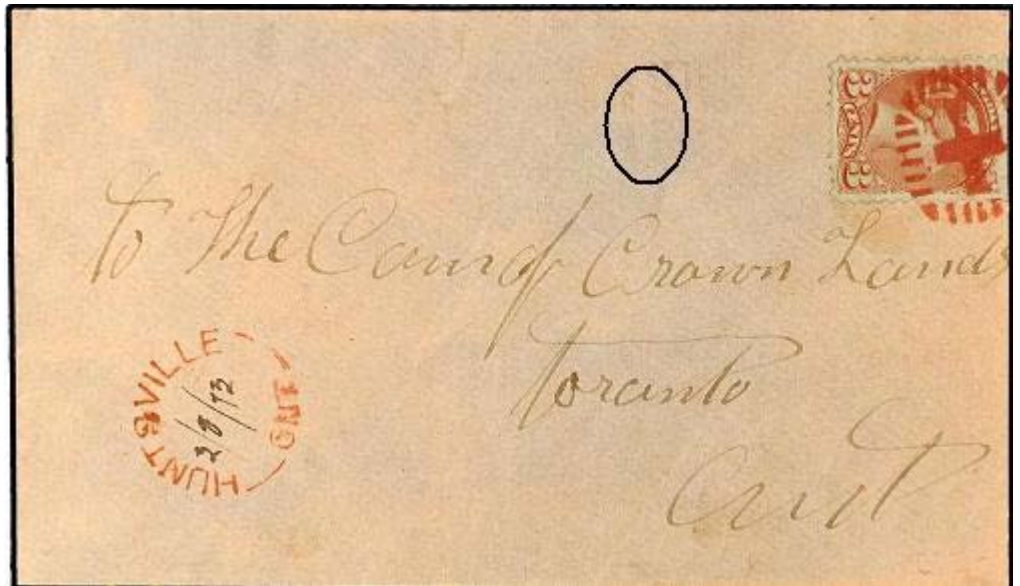 3 CENTS 3
To The Com of Crown Lands
Toronto
Ont
HUNTSVILLE ONT
2/9/72